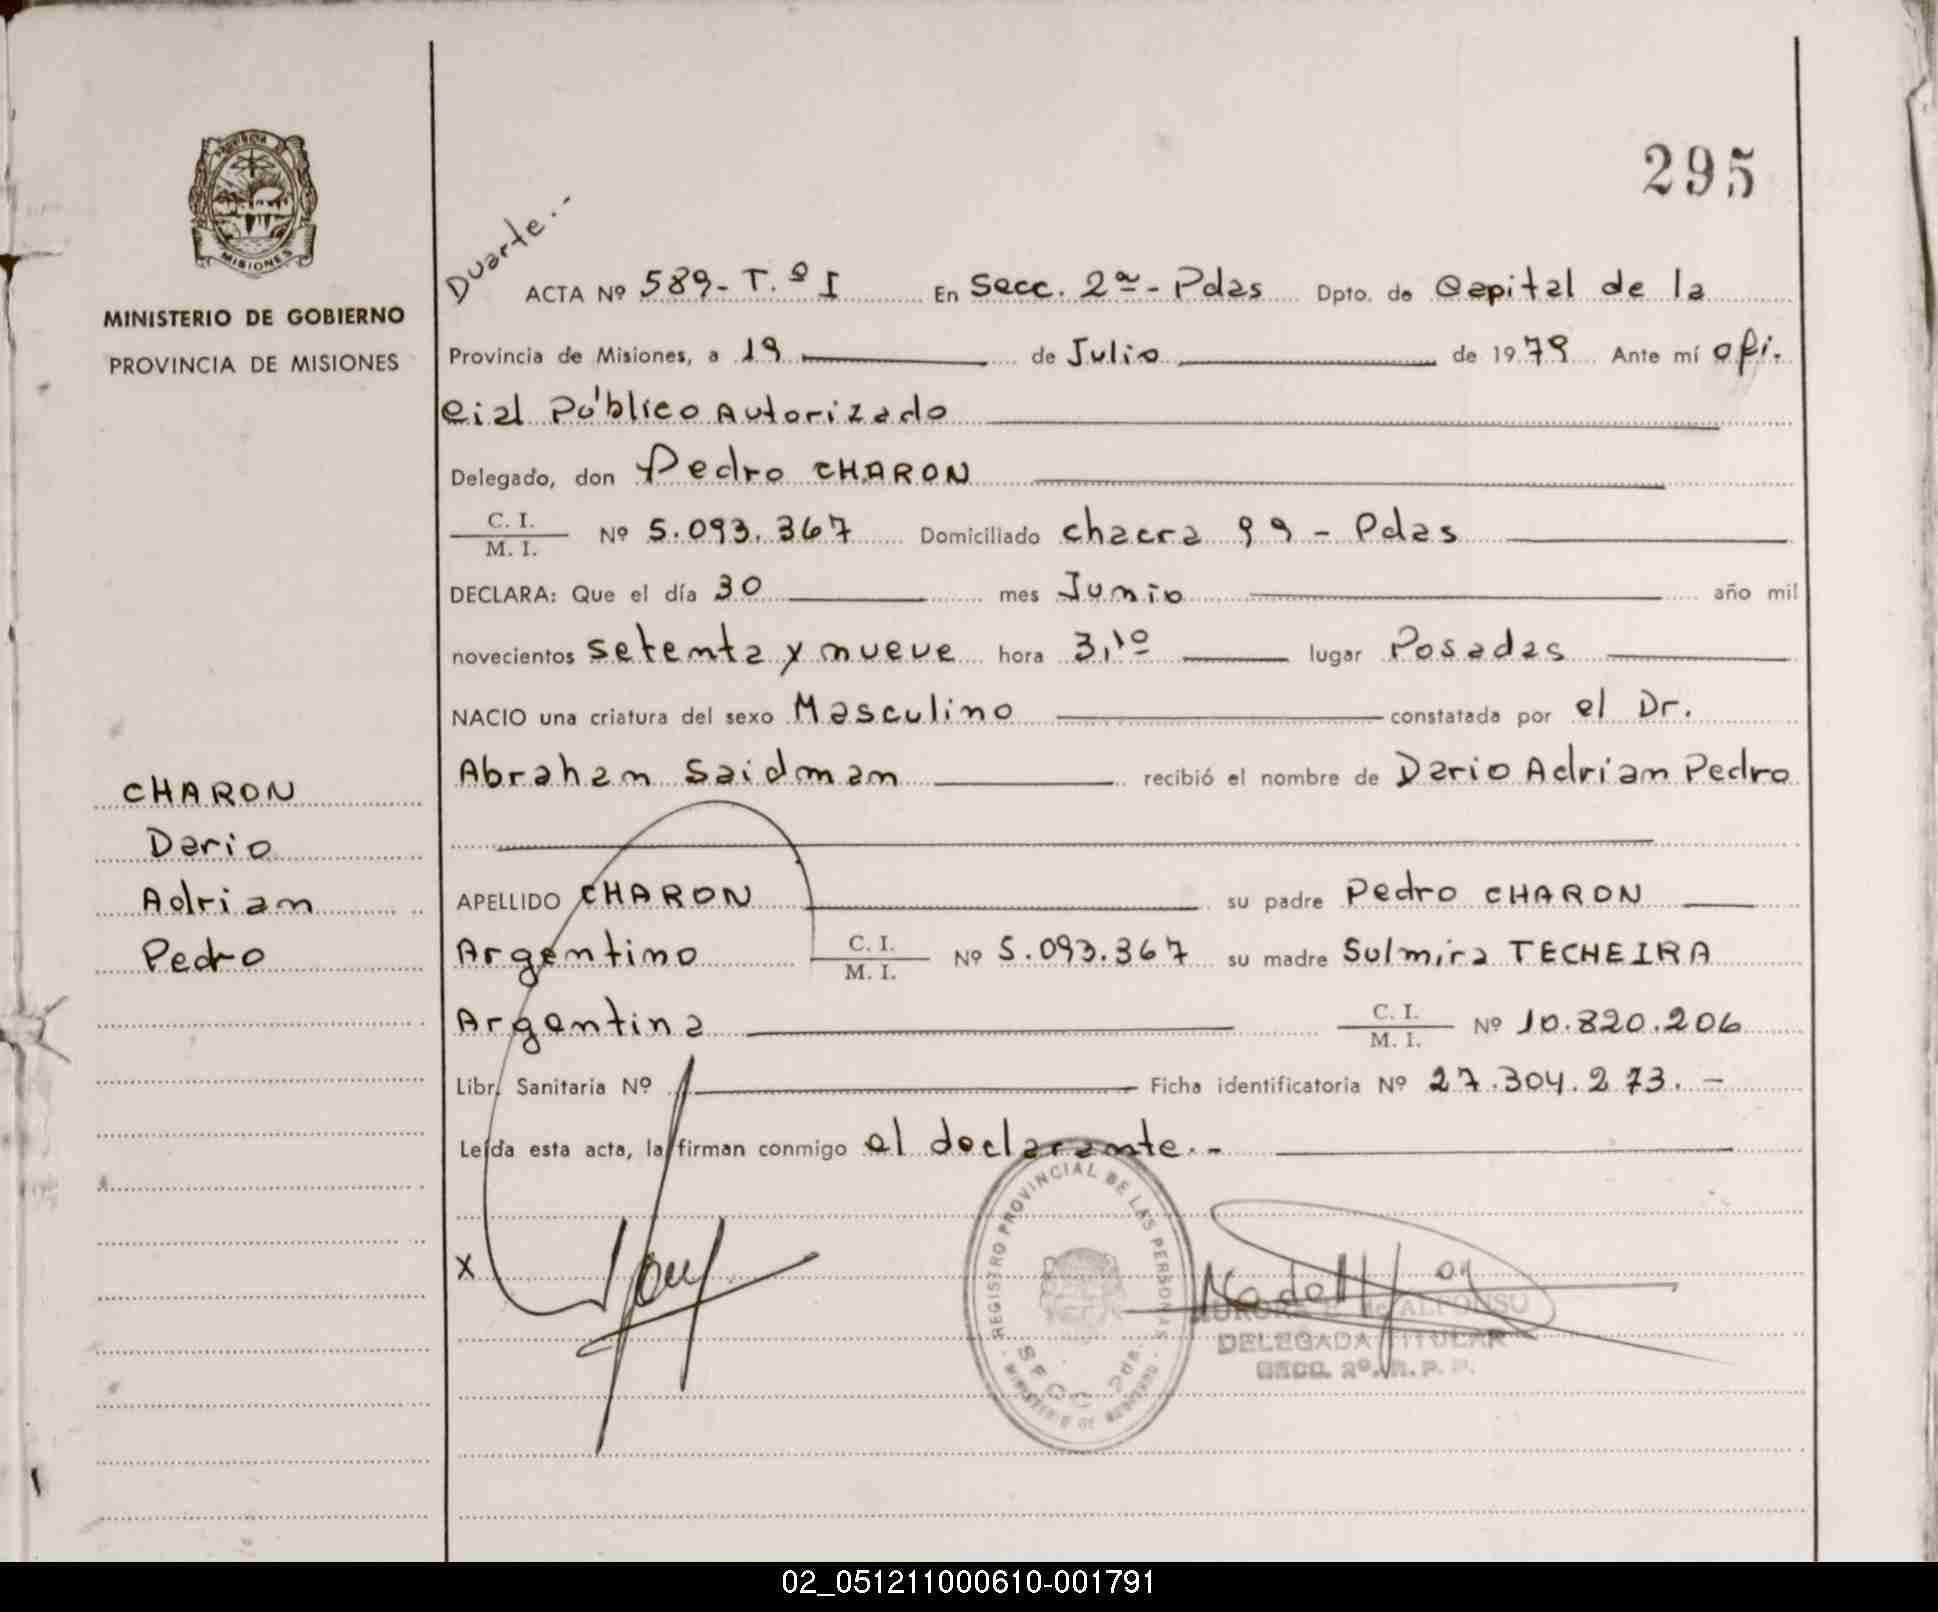 295
PROVINCIA DE
MISIONES
MINISTERIO DE GOBIERNO
PROVINCIA DE MISIONES
CHARON
Dario
Adrian
Pedro
Duarte.-
ACTA Nº 589-T.º I En Secc. 2ª - Pdas Dpto. de Capital de la
Provincia de Misiones, a 19 de Julio de 1979 Ante mí ofi.
cial Público Autorizado
Delegado, don Pedro CHARON
C. I.
M. I. Nº 5.093.367 Domiciliado chacra 99 - Pdas
DECLARA: Que el día 30 mes Junio año mil
novecientos setenta y nueve hora 3,10 lugar Posadas
NACIO una criatura del sexo Masculino constatada por el Dr.
Abraham Saidman recibió el nombre de Dario Adrian Pedro
APELLIDO CHARON su padre Pedro CHARON
Argentino C. I.
M. I. Nº 5.093.367 su madre Sulmira TECHEIRA
Argentina C. I.
M. I. Nº 10.820.206
Libr. Sanitaria Nº Ficha identificatoria Nº 27.304.273.-
Leída esta acta, la firman conmigo el declarante.-
X
REGISTRO PROVINCIAL DE LAS PERSONAS
SECC 2da.
MINISTERIO DE GOBIERNO
de ALFONSO
DELEGADA TITULAR
SECC. 2º. R. P. P.
02_051211000610-001791